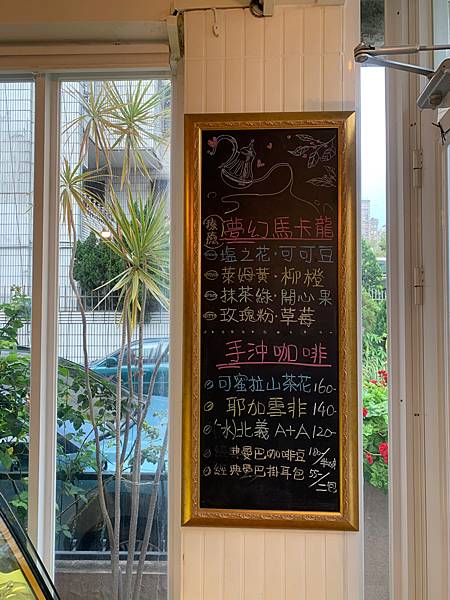 夢幻馬卡龍
塩之花·可可豆
萊姆黃·柳橙
抹茶綠·開心果
玫瑰粉·草莓
手沖咖啡
可蜜拉山茶花 160-
耶加雪非 140-
水北義 A+A 120-
典曼巴咖啡豆 180/
經典曼巴掛耳包 55-/二包